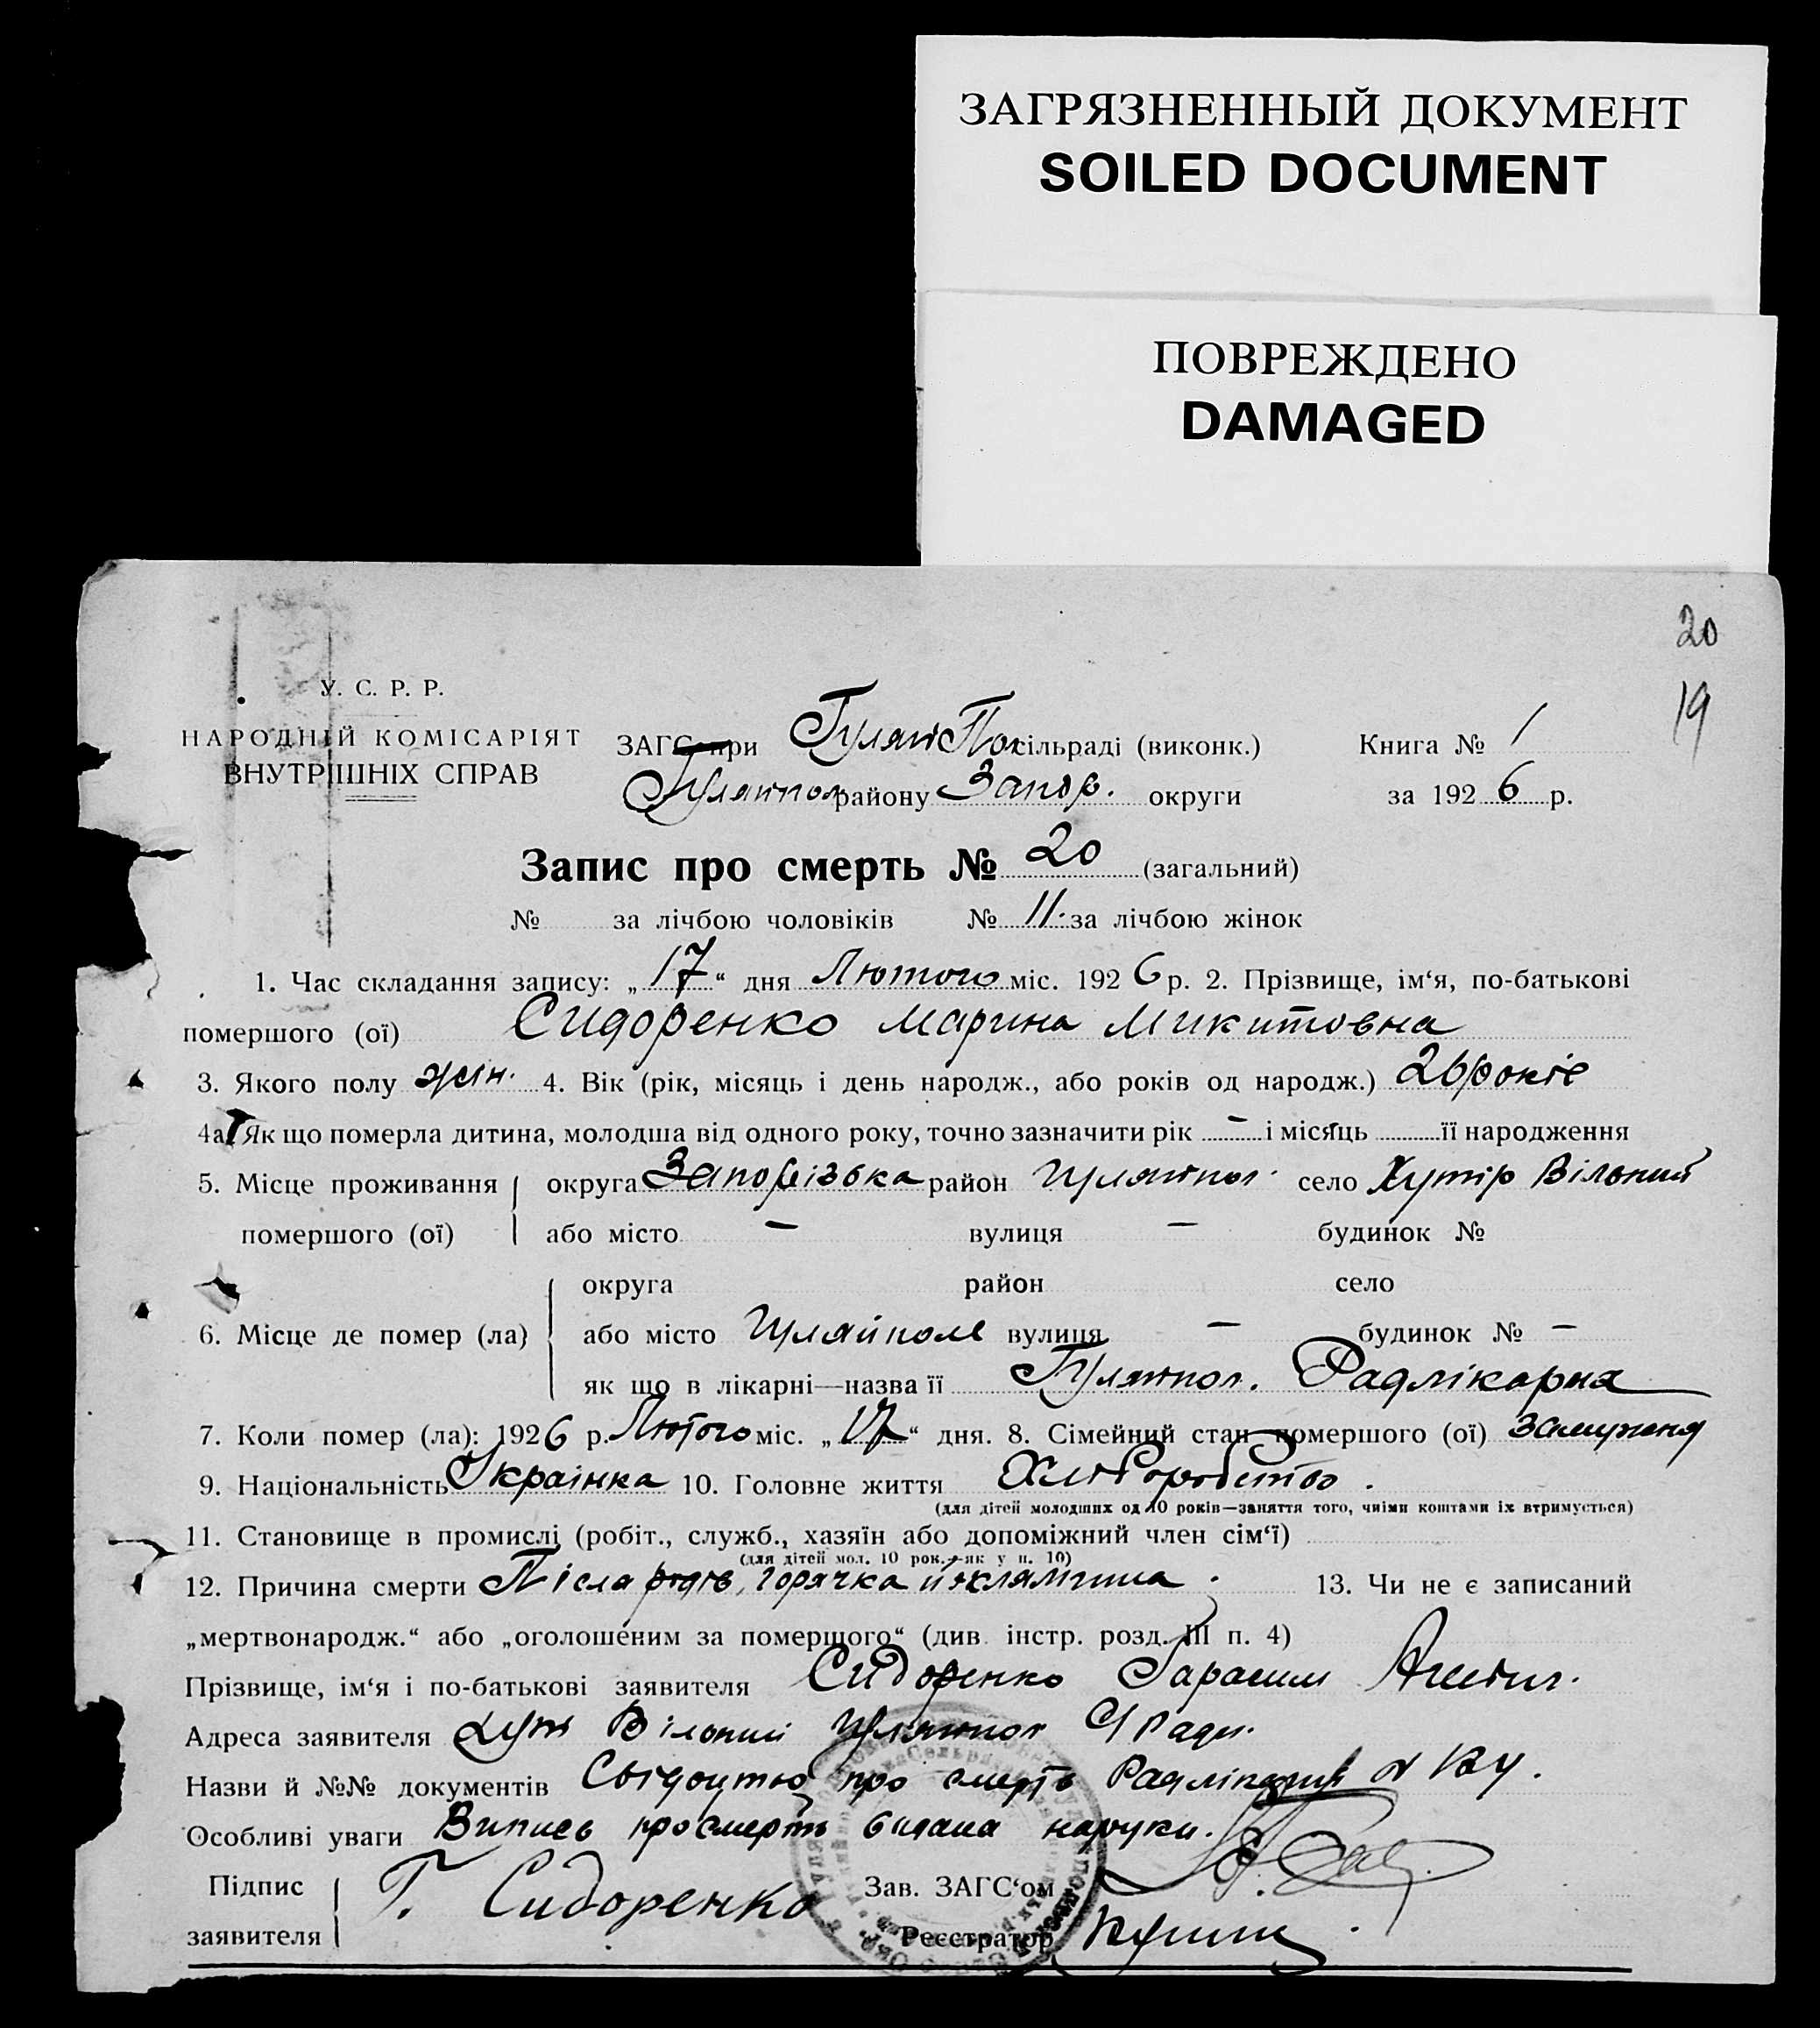 ЗАГРЯЗНЕННЫЙ ДОКУМЕНТ
SOILED DOCUMENT
ПОВРЕЖДЕНО
DAMAGED
20
19
У. С. Р. Р.
НАРОДНІЙ КОМІСАРІЯТ
ВНУТРІШНІХ СПРАВ
ЗАГС при Гуляй Пол сільраді (виконк.) Книга № 1
Гуляйпол району Запор. округи за 1926 р.
Запис про смерть № 20 (загальний)
№ за лічбою чоловіків № 11. за лічбою жінок
1. Час складання запису: „17“ дня Лютого міс. 1926 р. 2. Прізвище, ім‘я, по-батькові
помершого (ої) Сидоренко Марина Микитовна
3. Якого полу жін. 4. Вік (рік, місяць і день народж., або років од народж.) 26 років
4а. Як що померла дитина, молодша від одного року, точно зазначити рік – і місяць її народження
5. Місце проживання округа Запорізька район Гуляйпол. село Хутір Вільний
помершого (ої) або місто – вулиця – будинок №
округа район село
6. Місце де помер (ла) або місто Гуляйполе вулиця – будинок № –
як що в лікарні—назва її Гуляйпол. Радлікарня
7. Коли помер (ла): 1926 р. Лютого міс. „17“ дня. 8. Сімейний стан помершого (ої) замужня
9. Національність Українка 10. Головне життя Хліборобство.
(для дітей молодших од 10 років—заняття того, чиїми коштами їх втримується)
11. Становище в промислі (робіт., служб., хазяїн або допоміжний член сім‘ї)
(для дітей мол. 10 рок.—як у п. 10)
12. Причина смерти Після родів, горячка й еклямпсиа. 13. Чи не є записаний
„мертвонародж.“ або „оголошеним за помершого“ (див. інстр. розд. III п. 4)
Прізвище, ім‘я і по-батькові заявителя Сидоренко Гарасим
Адреса заявителя Хут Вільний Гуляйпол С/Ради.
Назви й №№ документів Свідоцтво про смерть Радлікарні №
Особливі уваги Випись про смерть видана наруки.
Підпис Г. Сидоренко Зав. ЗАГС‘ом
заявителя Реєстратор